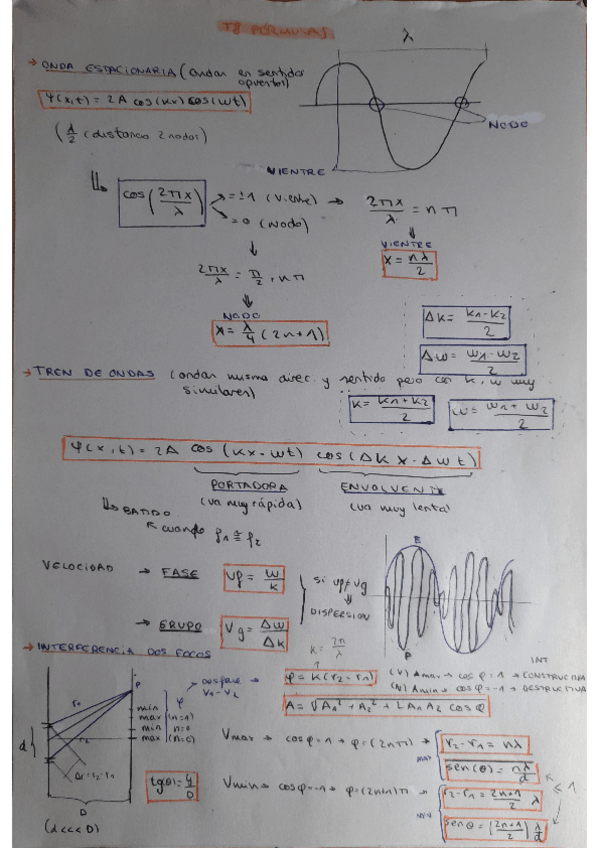 T8 FÓRMULAS
→ ONDA ESTACIONARIA (ondas en sentidos opuestos)
λ
Ψ(x,t) = 2A cos(kx) cos(wt)
NODO
(λ/2 (distancia 2 nodos)
VIENTRE
cos(2πx/λ) → = ±1 (vientre) → 2πx/λ = nπ
→ = 0 (Nodo)
VIENTRE
x = nλ/2
2πx/λ = π/2 , nπ
NODO
x = λ/4 (2n+1)
Δk = k1-k2/2
Δw = w1-w2/2
→ TREN DE ONDAS (ondas misma direc. y sentido pero con k, w muy similares)
k = k1+k2/2
w = w1+w2/2
Ψ(x,t) = 2A cos (kx-wt) cos(Δk x - Δwt)
PORTADORA
(va muy rápida)
ENVOLVENTE
(va muy lenta)
BATIDO
cuando f1 ≅ f2
E
VELOCIDAD → FASE vf = w/k
si vf≠vg
DISPERSION
→ GRUPO Vg = Δw/Δk
P
→ INTERFERENCIA DOS FOCOS
k = 2π/λ
INT
P
r1
φ
φ = k(r2-r1)
(V) Amax → cos φ = 1 → CONSTRUCTIVA
(N) Amin → cos φ = -1 → DESTRUCTIVA
min
max (n=1)
A = √A1² + A2² + 2A1A2 cos φ
min n=0
max (n=0)
r2
d
Δr=r2-r1
Vmax → cosφ=1 → φ=(2nπ) → r2-r1 = nλ
max
sen(θ) = nλ/d
tg(θ)=y/D
≤ 1
Vmin → cosφ=-1 → φ=(2n+1)π → r2-r1 = 2n+1/2 λ
min
D
(d<<<D)
senθ = (2n+1/2) λ/d